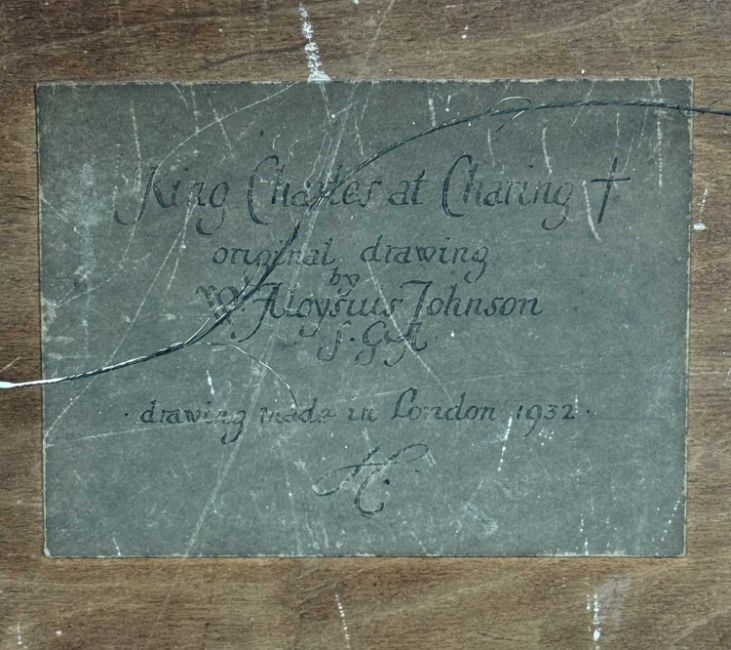 King Charles at Charing †
original drawing
by
Aloysius Johnson
S.G.A.
· drawing made in London 1932 ·